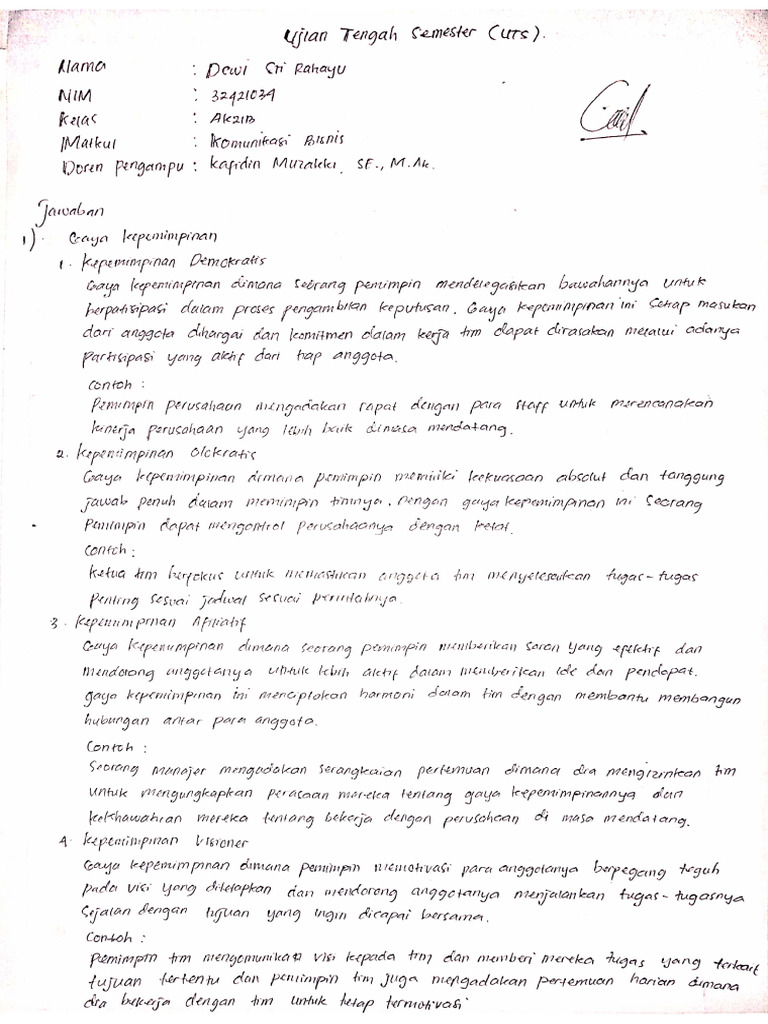 Ujian Tengah Semester (UTS).
Nama : Dewi Sri Rahayu
NIM : 32421034
Kelas : AK21B
Matkul : Komunikasi Bisnis
Dosen Pengampu : Kafidin Muzakki, SE., M.Ak.
Jawaban
1). Gaya kepemimpinan
1. Kepemimpinan Demokratis
Gaya kepemimpinan dimana seorang pemimpin mendelegasikan bawahannya untuk
berpatisipasi dalam proses pengambilan keputusan. Gaya kepemimpinan ini setiap masukan
dari anggota dihargai dan komitmen dalam kerja tim dapat dirasakan melalui adanya
partisipasi yang aktif dari tiap anggota.
Contoh :
Pemimpin perusahaan mengadakan rapat dengan para staff untuk merencanakan
kinerja perusahaan yang lebih baik dimasa mendatang.
2. Kepemimpinan Otokratis
Gaya kepemimpinan dimana pemimpin memiliki kekuasaan absolut dan tanggung
jawab penuh dalam memimpin timnya. Dengan gaya kepemimpinan ini seorang
Pemimpin dapat mengontrol perusahaanya dengan ketat.
Contoh :
Ketua tim berfokus untuk memastikan anggota tim menyelesaikan tugas-tugas
penting sesuai jadwal sesuai perintahnya.
3. Kepemimpinan Afiliatif
Gaya kepemimpinan dimana seorang pemimpin memberikan saran yang efektif dan
mendorong anggotanya untuk lebih aktif dalam memberikan ide dan pendapat.
gaya kepemimpinan ini menciptakan harmoni dalam tim dengan membantu membangun
hubungan antar para anggota.
Contoh :
Seorang manajer mengadakan serangkaian pertemuan dimana dia mengizinkan tim
untuk mengungkapkan perasaan mereka tentang gaya kepemimpinannya dan
kekhawatiran mereka tentang bekerja dengan perusahaan di masa mendatang.
4. Kepemimpinan Visioner
Gaya kepemimpinan dimana pemimpin memotivasi para anggotanya berpegang teguh
pada visi yang ditetapkan dan mendorong anggotanya menjalankan tugas-tugasnya
sejalan dengan tujuan yang ingin dicapai bersama.
Contoh :
Pemimpin tim mengomunikasi visi kepada tim dan memberi mereka tugas yang terkait
tujuan tertentu dan pemimpin tim juga mengadakan pertemuan harian dimana
dia bekerja dengan tim untuk tetap termotivasi